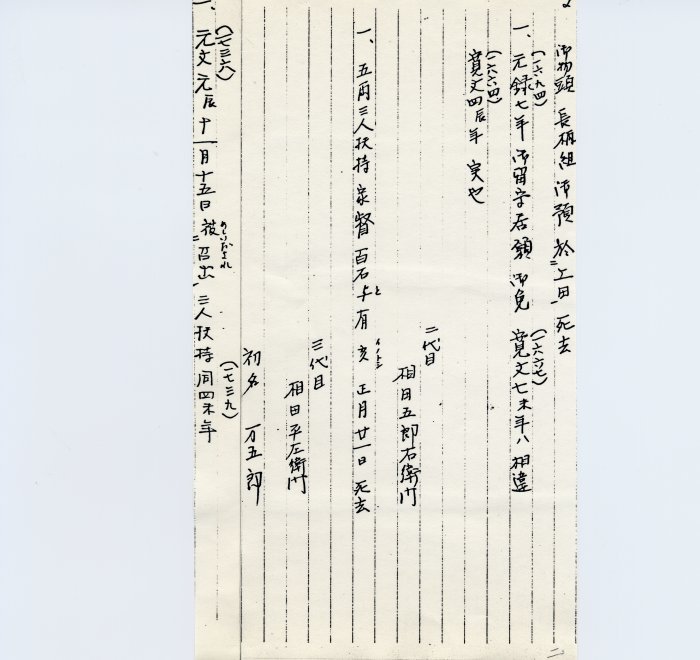 御物頭 長柄組 御預 於二上田一死去
(一六九四)
一、元録七年 御留守居願 御免
(一六六七)
寛文七未年ハ相違
(一六六四)
寛文四辰年 実也
一、五両三人扶持 家督 百石
と
与有 亥 正月廿一日 死去
二代目
相田五郎右衛門
三代目
相田平左衛門
初名 万五郎
(一七三六)
一、元文元辰十一月十五日 被二召出一 三人扶持 同四未年
めしいだされ
(一七三九)
二